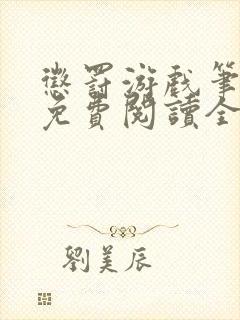 懲罰游戏筆
免費閱讀全
劉美辰